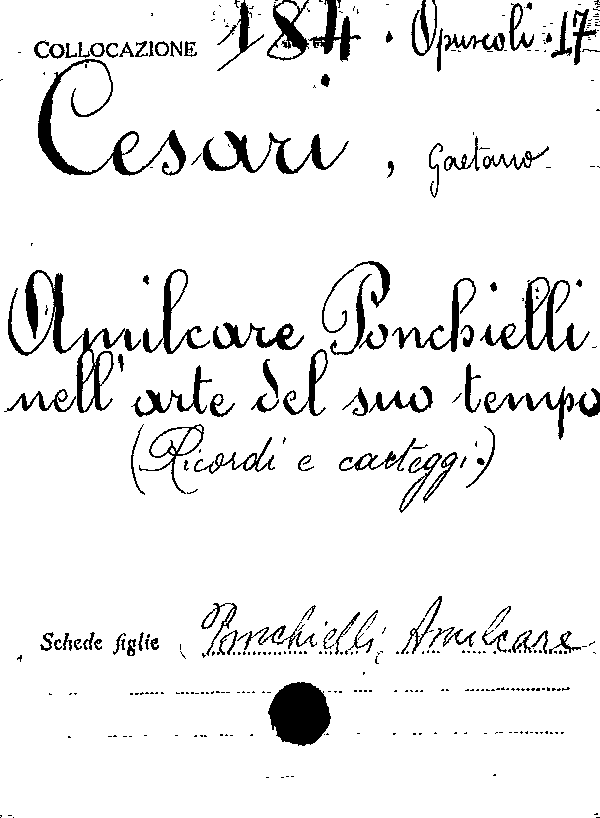 COLLOCAZIONE 184 · Opuscoli · 17
Cesari, Gaetano
Amilcare Ponchielli
nell'arte del suo tempo
(Ricordi e carteggi.)
Schede figlie Ponchielli, Amilcare